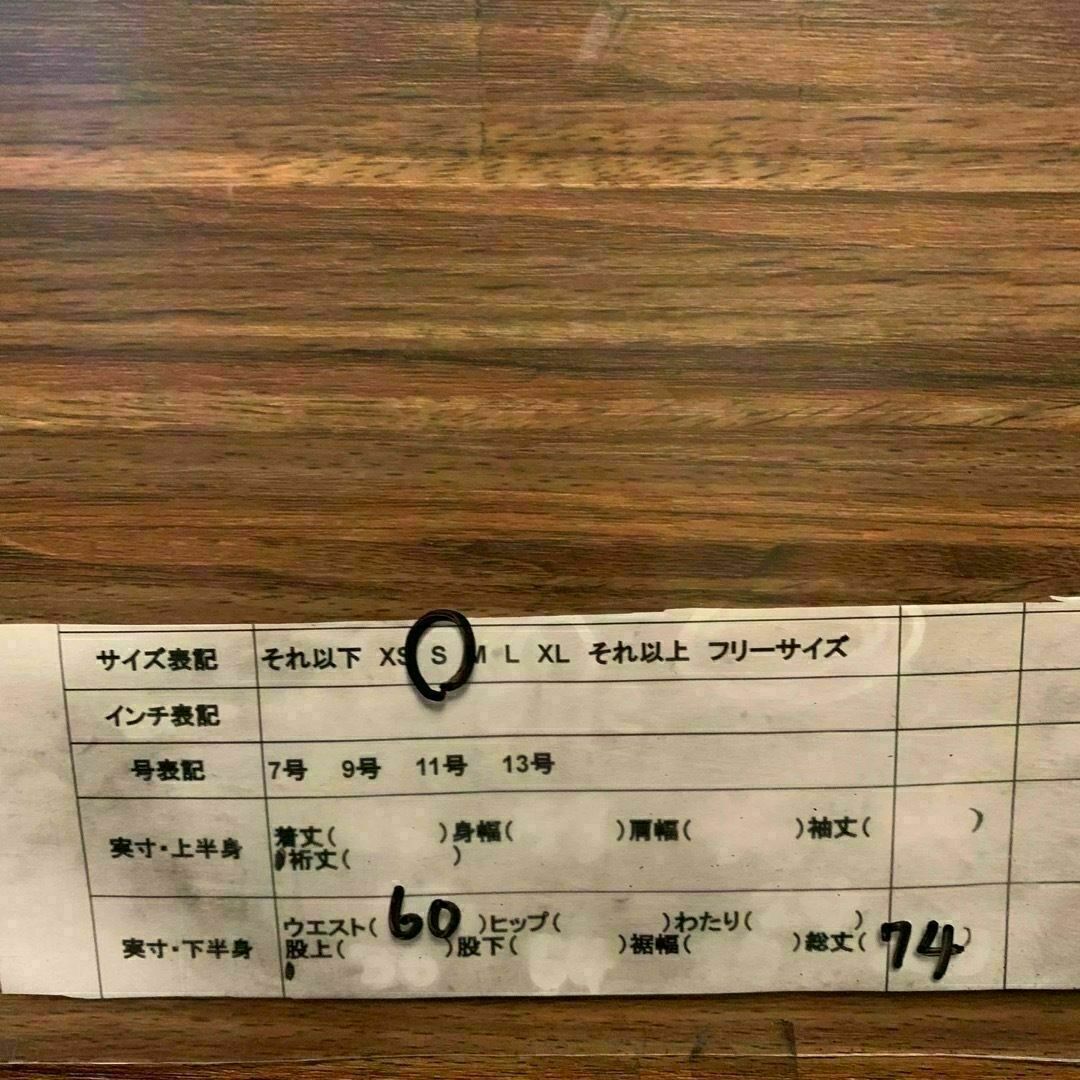 サイズ表記 それ以下 XS S M L XL それ以上 フリーサイズ
インチ表記
号表記 7号 9号 11号 13号
実寸・上半身 着丈( )身幅( )肩幅( )袖丈( )
裄丈( )
実寸・下半身 ウエスト( 60 )ヒップ( )わたり( )
股上( )股下( )裾幅( )総丈( 74 )